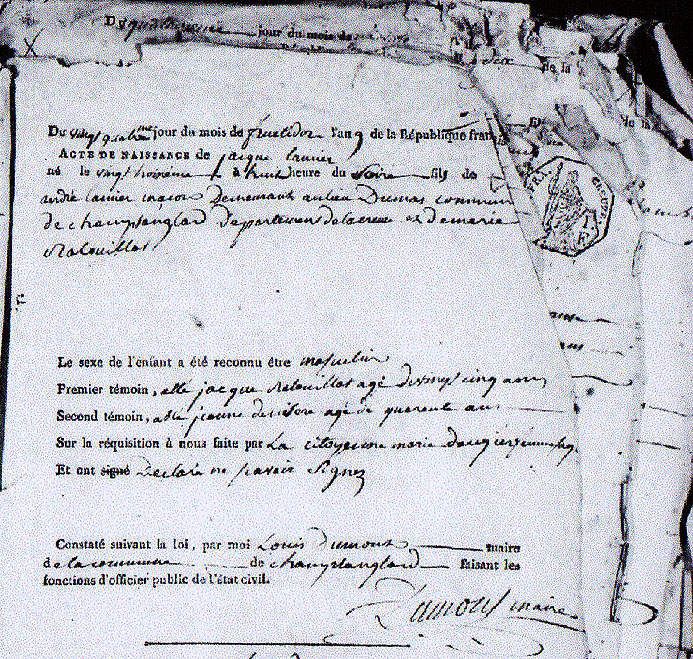 Du jour du mois de
de la
Du vingt quatrieme jour du mois de fructidor l'an 9 de la République fran
ACTE DE NAISSANCE de jacque lanier
né le vingt troisieme à huit heure du Soire fils de
andré lanier macon Demeurant au lieu Dumas commune
de champsanglard Departement de la creuse et de marie
Ratouillat
Le sexe de l'enfant a été reconnu être masculin
Premier témoin, a été jacque Ratouillat agé de cinq ans
Second témoin, a été agé de quarente ans
Sur la réquisition à nous faite par La citoyenne marie
Et ont signé Declaré ne savoir Signez
Constaté suivant la loi, par moi Louis Dumont maire
de la commune de champsanglard faisant les
fonctions d'officier public de l'état civil.
Dumont maire